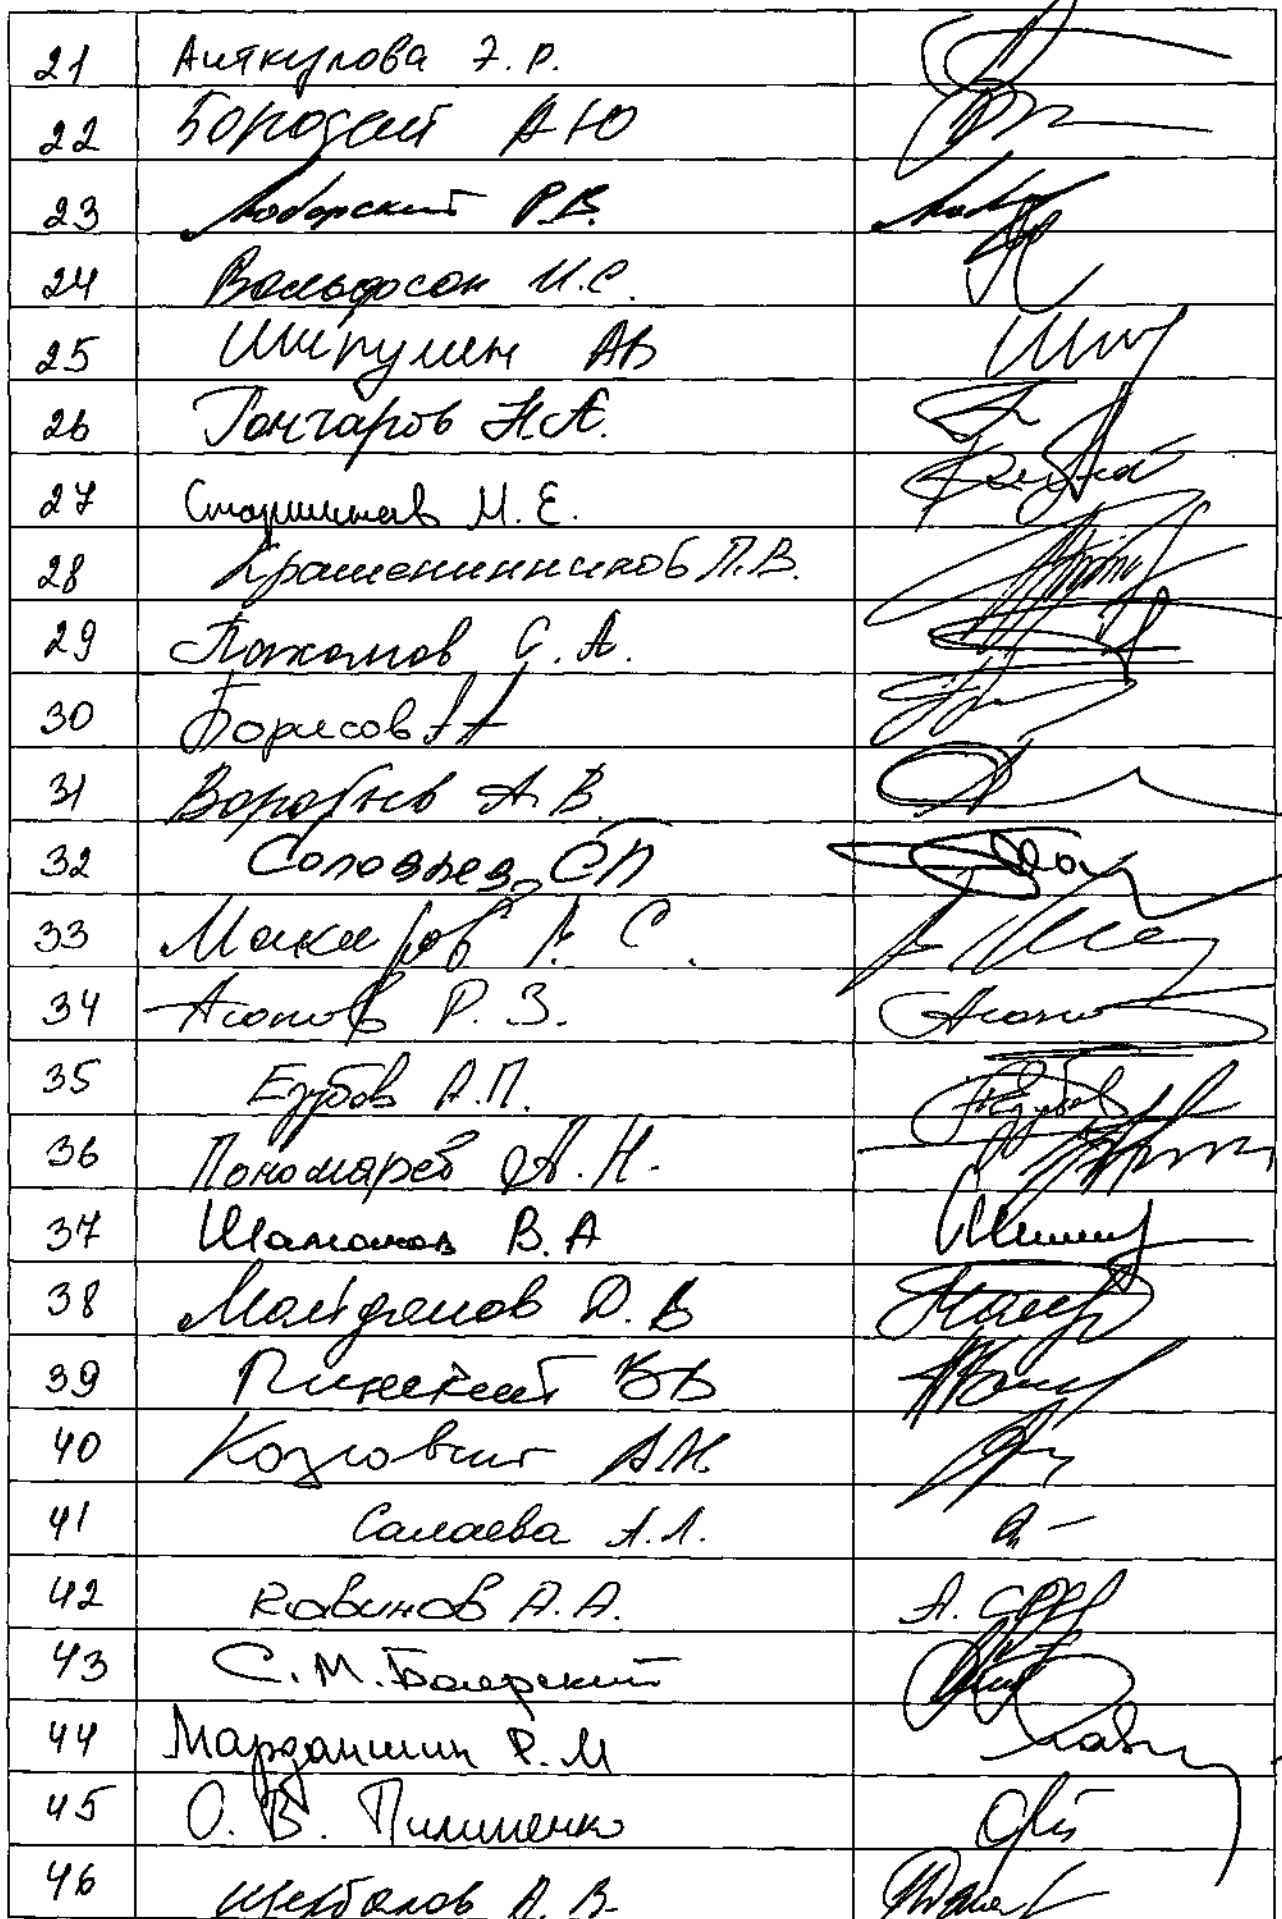 21 Аиткулова Э.Р.
22 Бородай А Ю
23 Лоборский Р.В.
24 Вольфсон И.С.
25 Шипулин АВ
26 Гончаров Н.А.
27 Старшинов М.Е.
28 Крашенинников П.В.
29 Пахомов С.А.
30 Борисов А А
31 Воробьев А В.
32 Соловьев СП
33 Макаров А. С.
34 Агапов Р. З.
35 Езубов А.П.
36 Пономарев А.Н.
37 Шаманов В.А
38 Майданов Д.В
39 Пинский ВВ
40 Козловский А.Н.
41 Салаева А.Л.
42 Кавинов А.А.
43 С.М. Боярский
44 Марданшин Р.М
45 О.В. Пилипенко
46 Щербаков А.В.